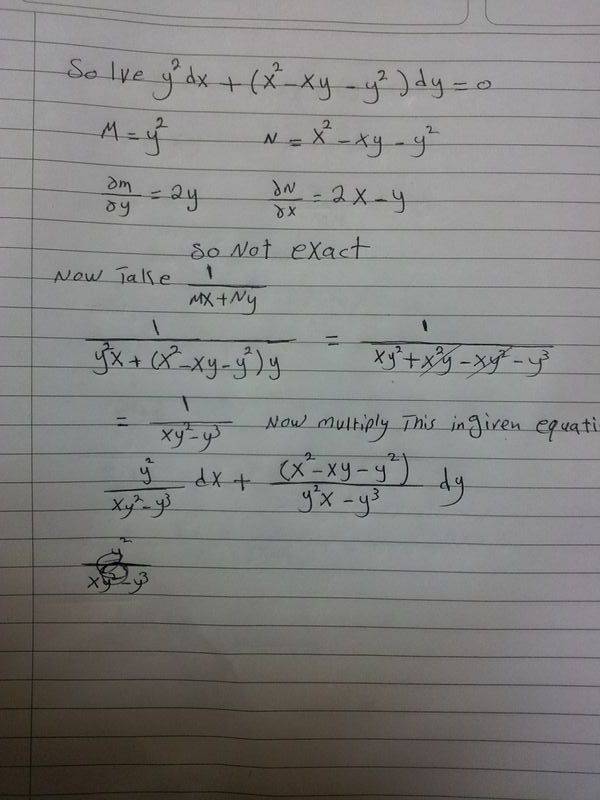 Solve y²dx + (x² - xy - y²)dy = 0
M = y² N = x² - xy - y²
∂m/∂y = 2y ∂N/∂x = 2x - y
So Not exact
Now Take 1/(Mx + Ny)
1/(y²x + (x² - xy - y²)y) = 1/(xy² + x²y - xy² - y³)
= 1/(xy² - y³) Now multiply This in given equati
y²/(xy² - y³) dx + (x² - xy - y²)/(y²x - y³) dy
y²/(xy² - y³)